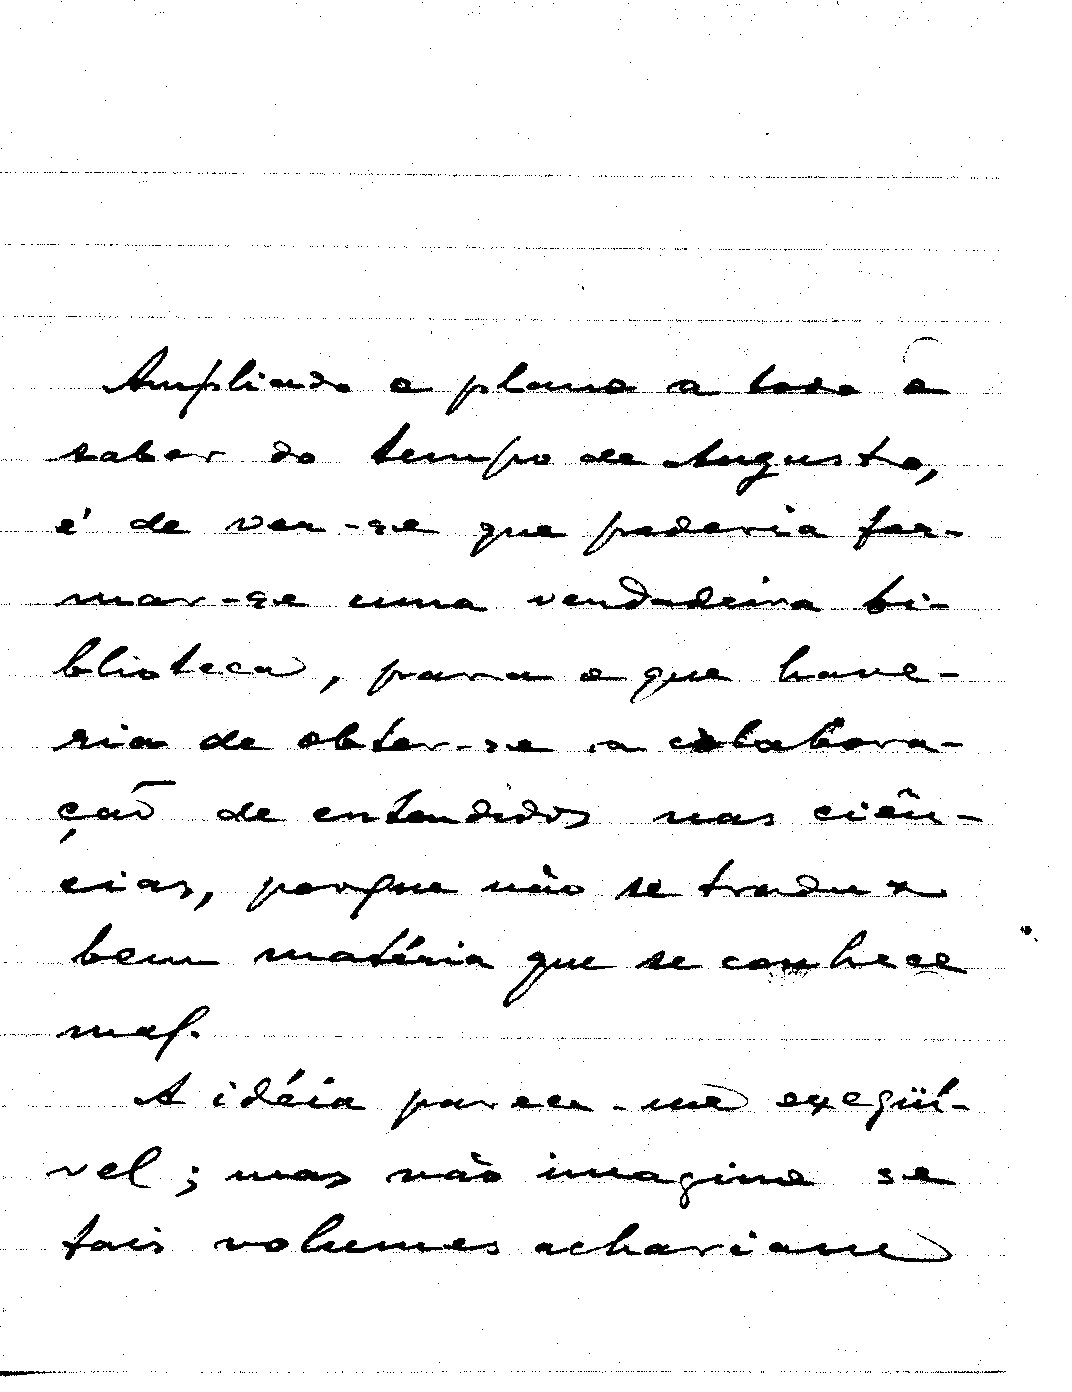 Ampliando o plano a todo o
saber do tempo de Augusto,
é de ver-se que poderia for-
mar-se uma verdadeira bi-
blioteca, para o que have-
ria de obter-se a colabora-
ção de entendidos nas ciên-
cias, porque não se traduz
bem matéria que se conhece
mal.
A idéia pareceu-me exeqüí-
vel; mas não imagino se
tais volumes achariam